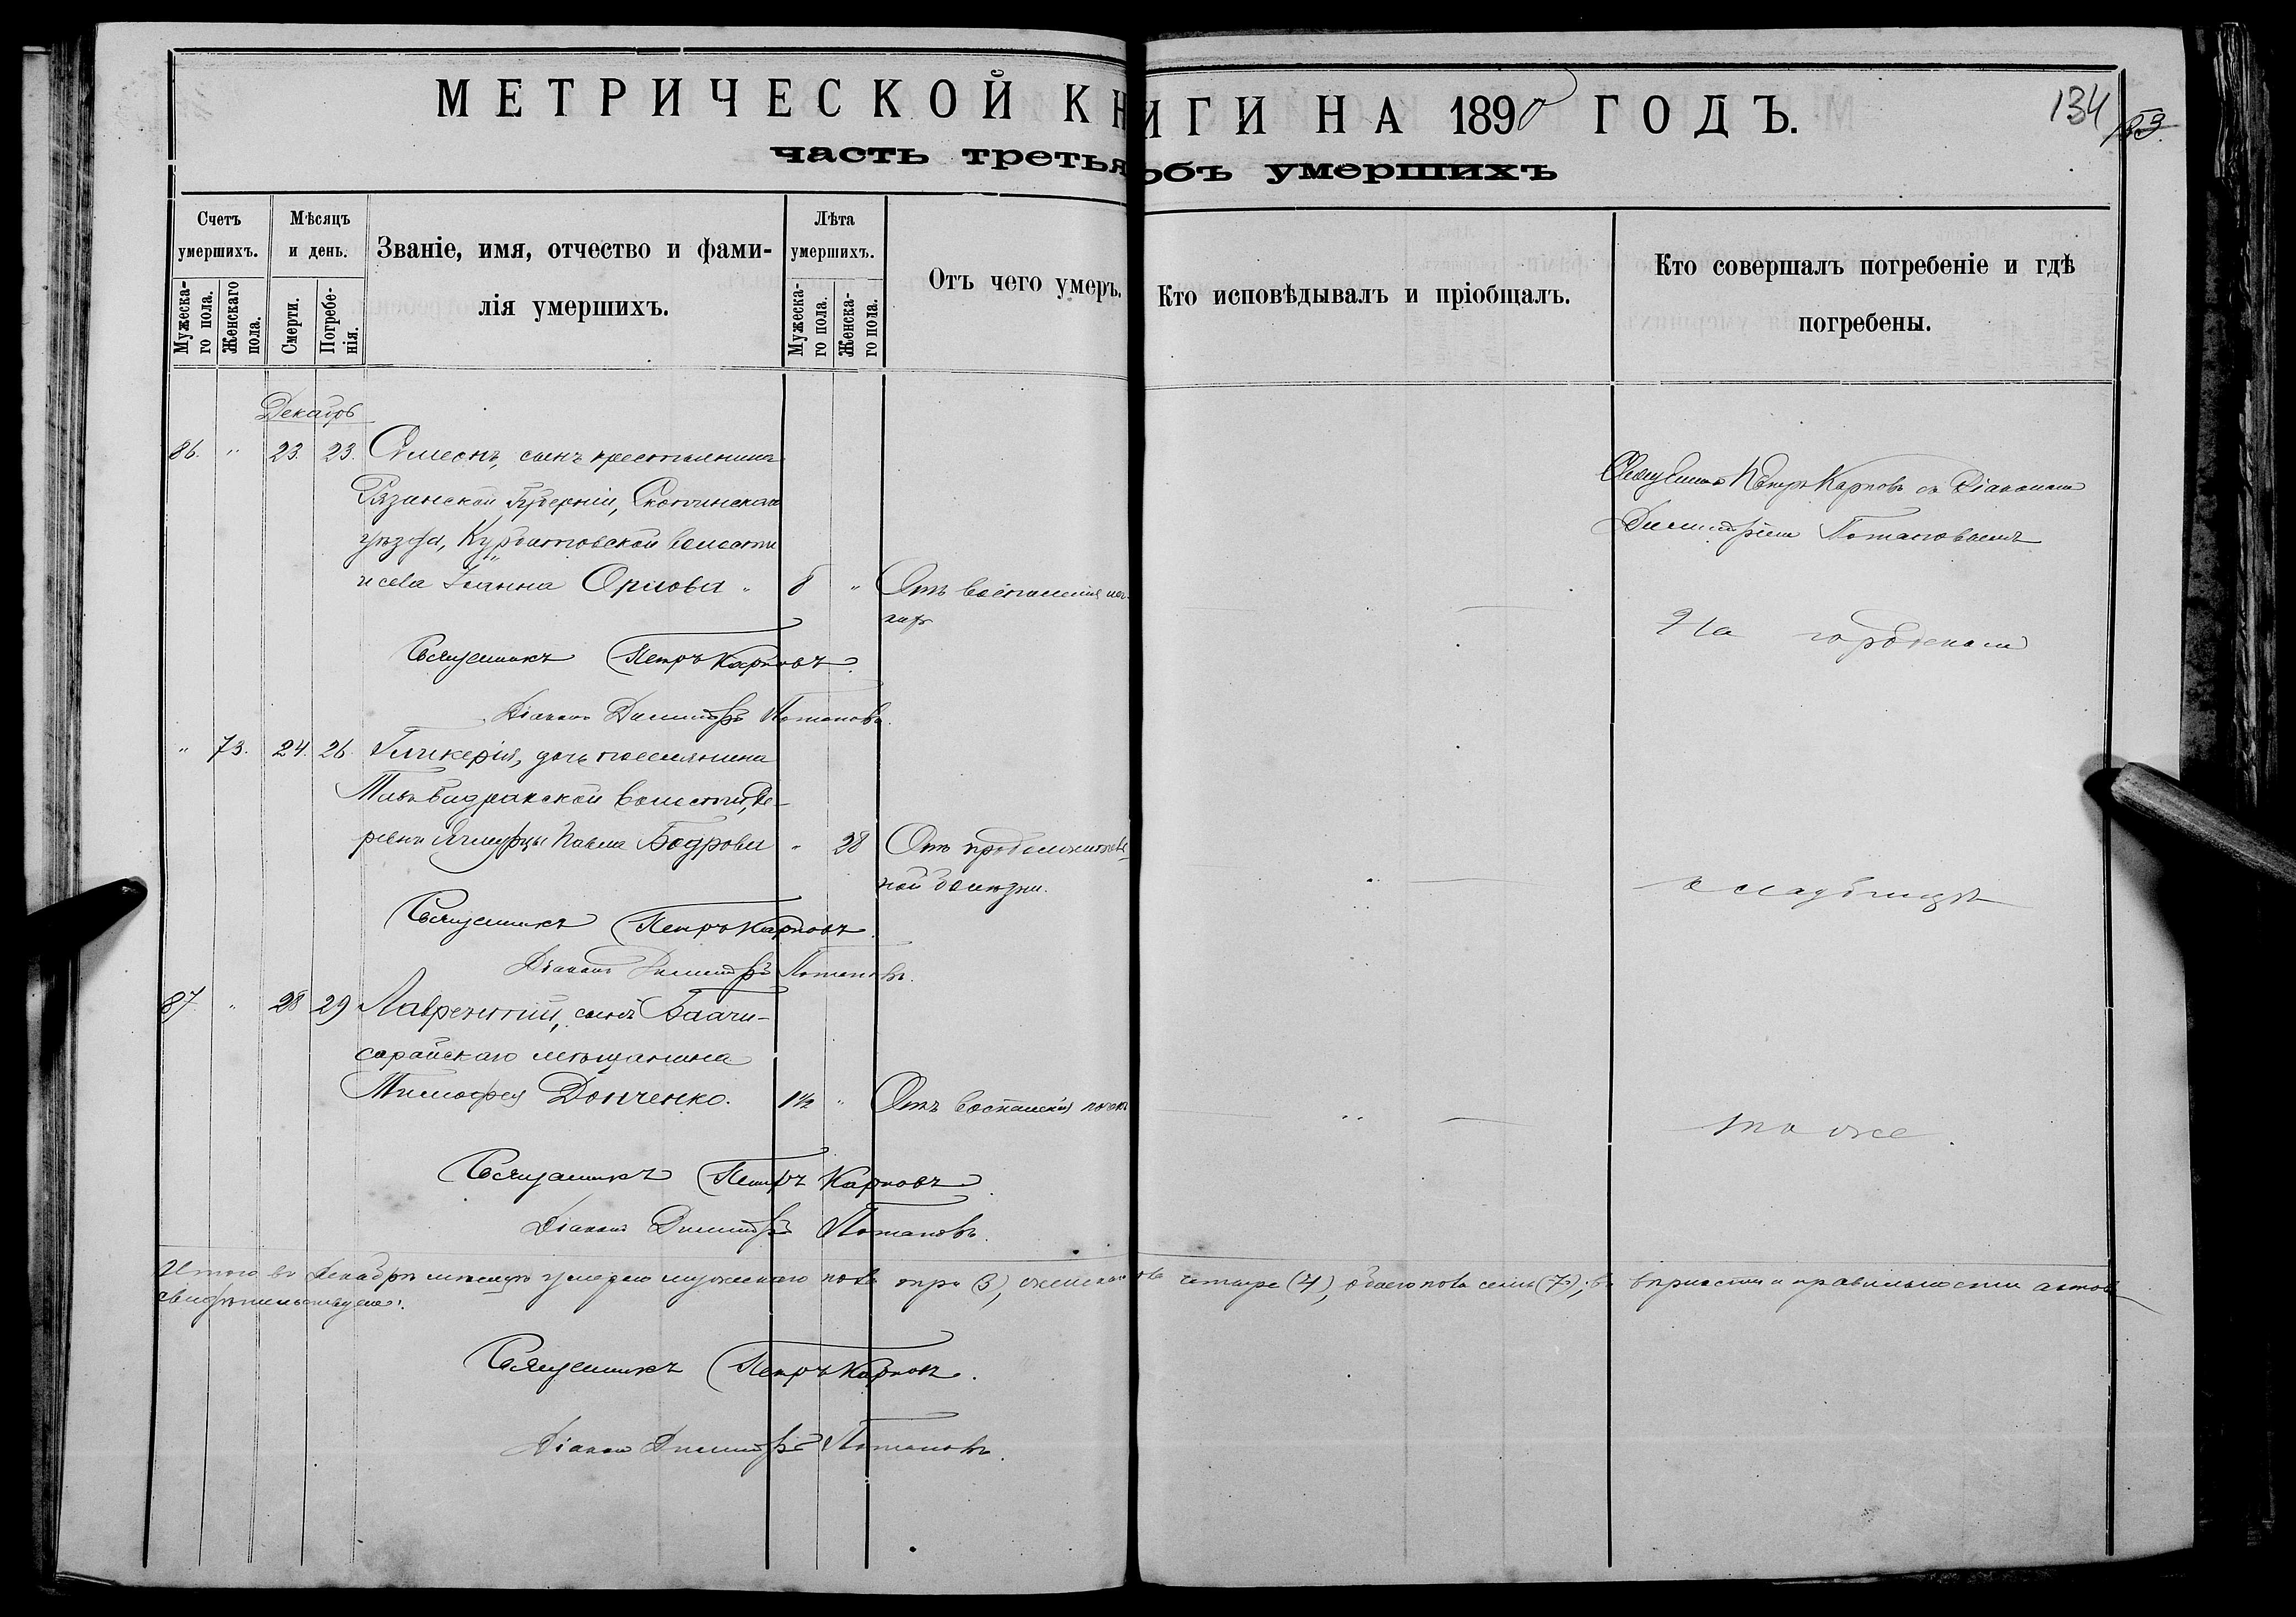 МЕТРИЧЕСКОЙ КНИГИ НА 1890 ГОДЪ.
134
часть третья объ умершихъ
Счетъ умершихъ.
Мужескаго пола.
Женскаго пола.
Мѣсяцъ и день.
Смерти.
Погребенія.
Званіе, имя, отчество и фамилія умершихъ.
Лѣта умершихъ.
Мужескаго пола.
Женскаго пола.
Отъ чего умеръ.
Кто исповѣдывалъ и пріобщалъ.
Кто совершалъ погребеніе и гдѣ погребены.
Декабрь
86. " 23. 23. Симеонъ, сынъ крестьянина
Рязанской Губерніи, Скопинскаго
уѣзда, Курбатовской волости
Іоанна Орлова "
"
Отъ воспаленія
Священникъ Петръ Карповъ съ Діакономъ
Димитріемъ Потаповымъ
На городскомъ
Священникъ Петръ Карповъ.
Діаконъ Димитрій Потаповъ.
" 73. 24. 26. Гликерія, дочь поселянина
волости, де-
ревни Павла Бодрова " 28 Отъ продолжитель-
ной болѣзни.
кладбищѣ
Священникъ Петръ Карповъ.
Діаконъ Димитрій Потаповъ.
87 " 28 29 Лаврентій, сынъ Бахчи-
сарайскаго мѣщанина
Тимофея Донченко. 1½ " Отъ воспаленія
"
тоже.
Священникъ Петръ Карповъ
Діаконъ Димитрій Потаповъ.
Итого въ Декабрѣ мѣсяцѣ умерло мужескаго пола три (3), женскаго пола четыре (4), обоего пола семь (7); въ вѣрности и правильности актовъ
свидѣтельствуемъ:
Священникъ Петръ Карповъ.
Діаконъ Димитрій Потаповъ.